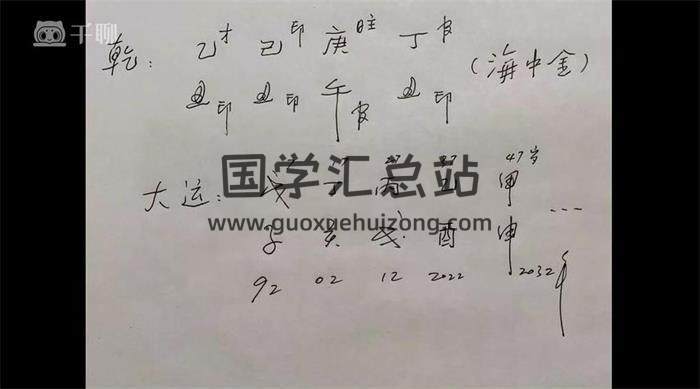 千聊
乾: 乙才 己印 庚日主 丁官 (海中金)
丑印 丑印 午官 丑印
国学汇总站
大运: 戊 丁 丙 乙 甲 47岁
www.guoxuehuizong.com
子 亥 戌 酉 申 ...
92 02 12 2022 2032年